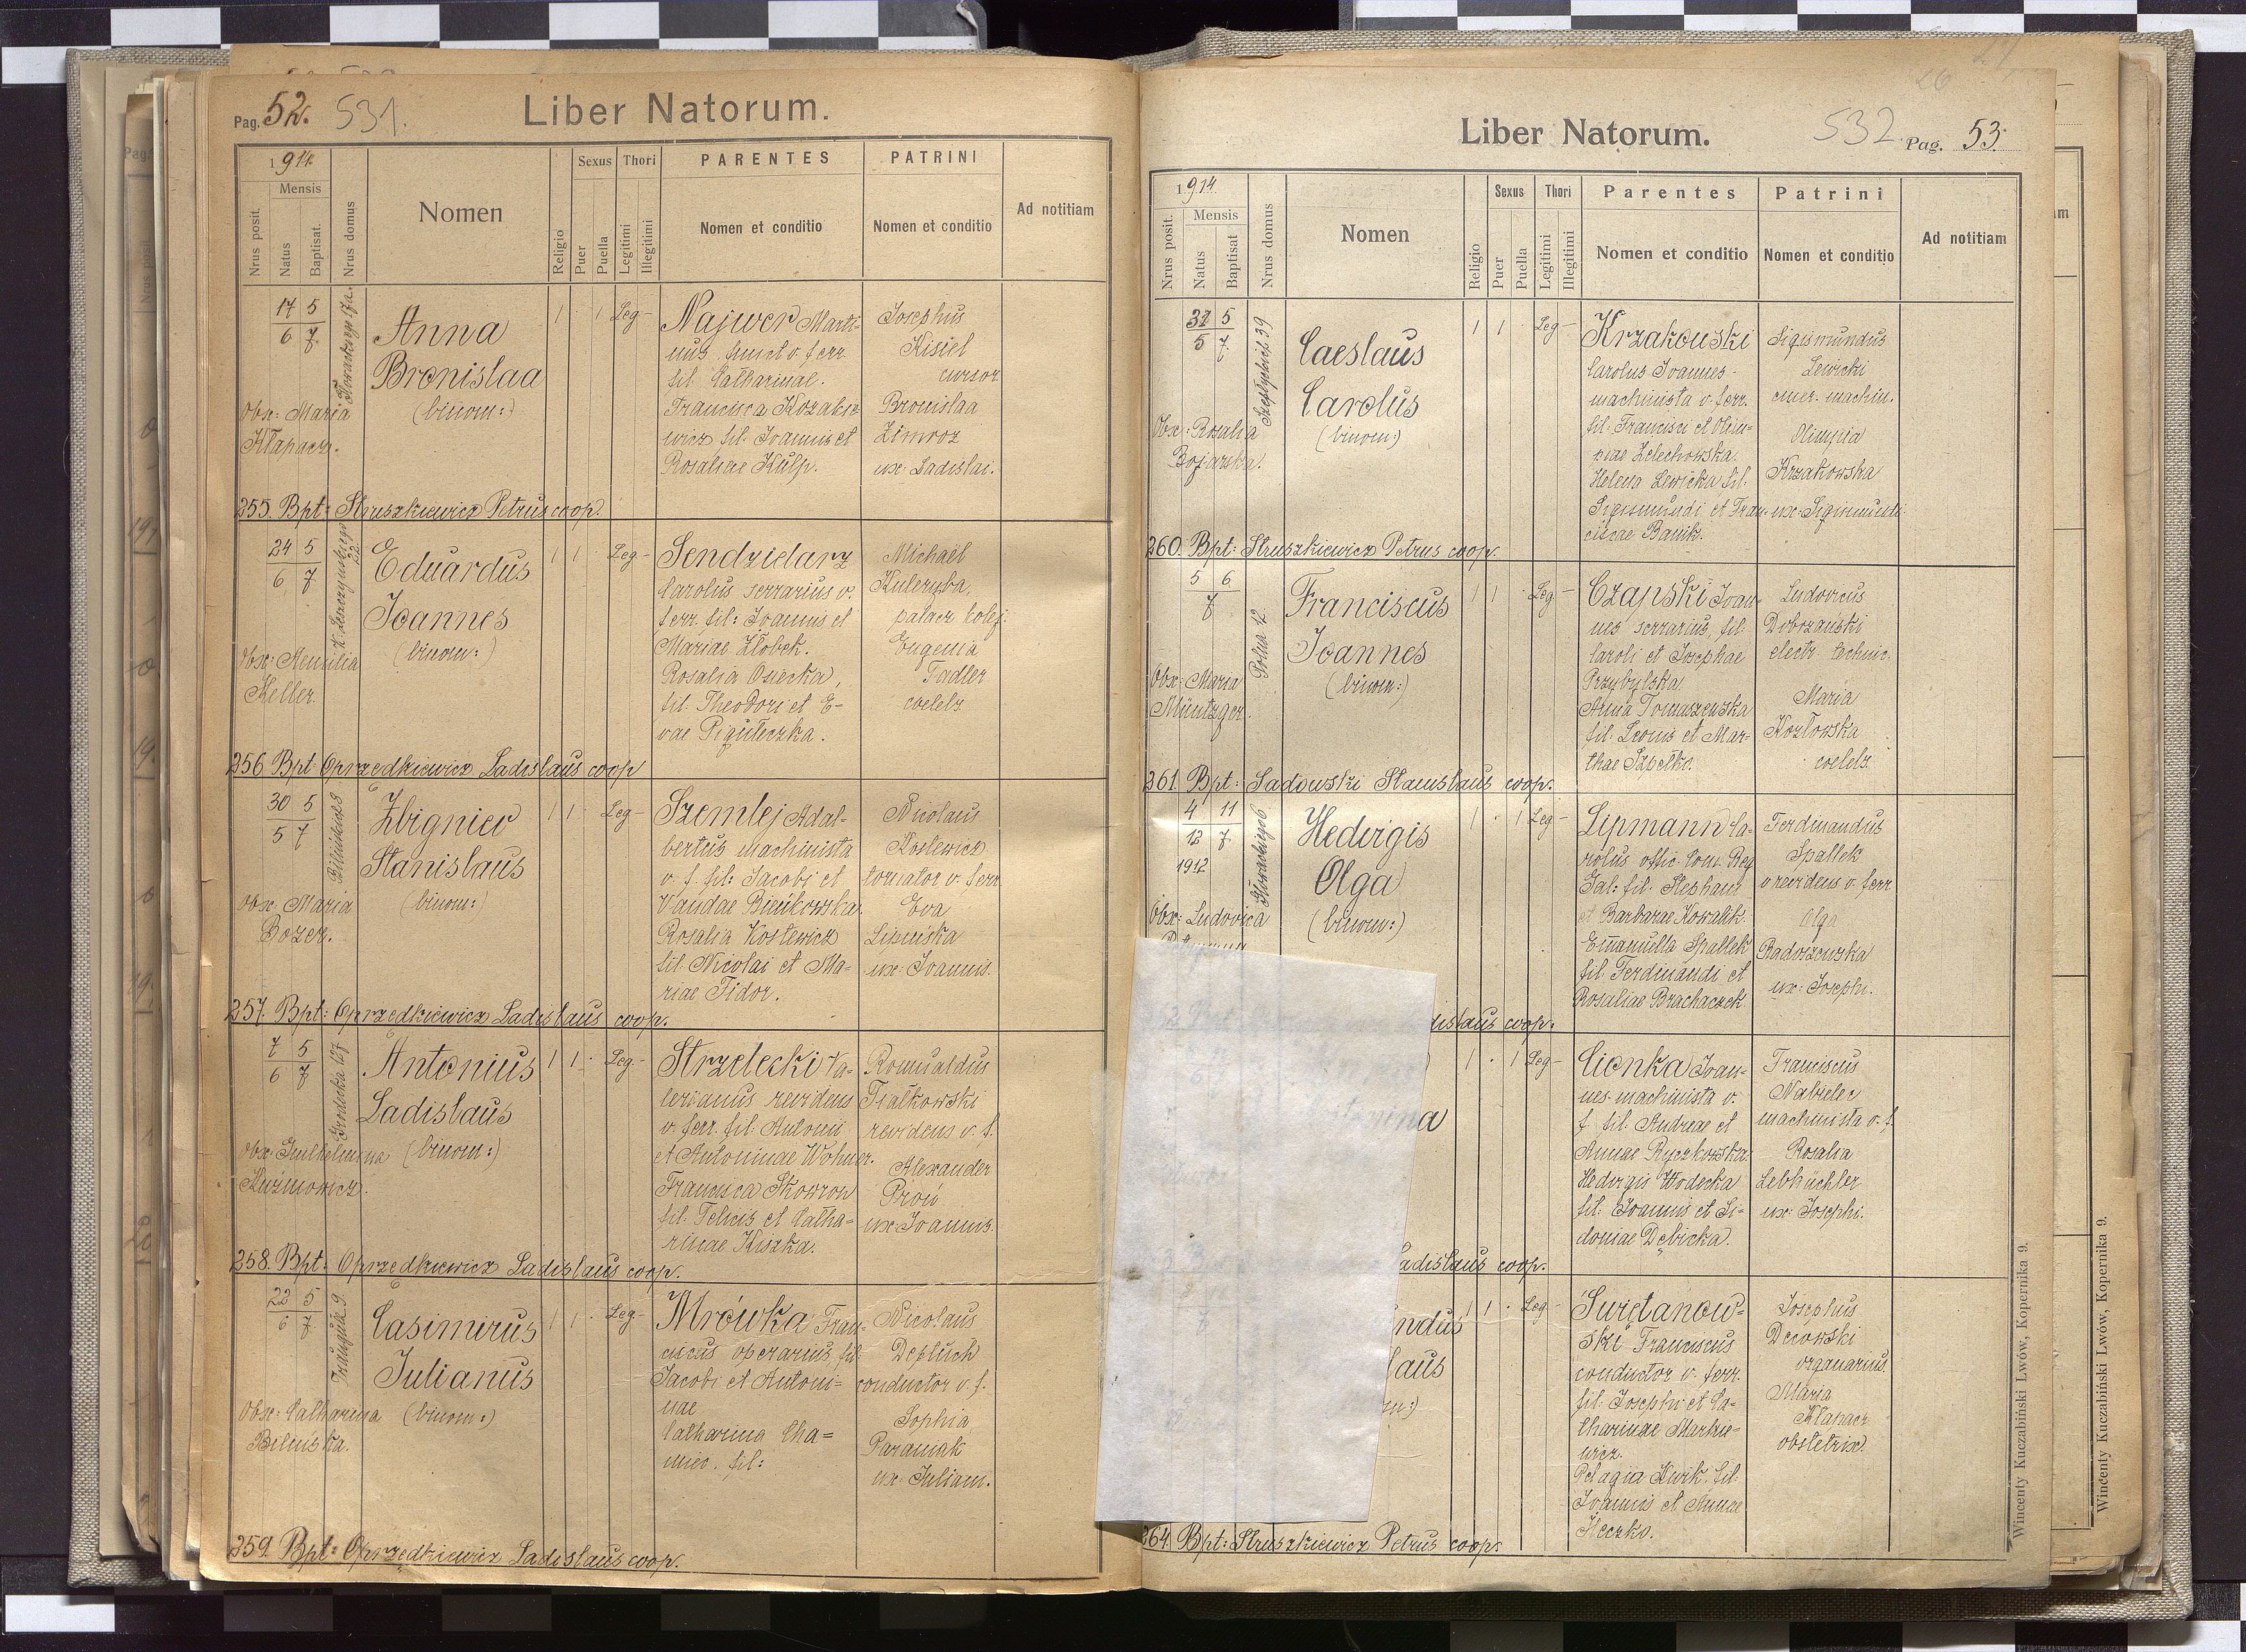 Pag. 52. 531.
Liber Natorum.
1914.
Mensis
Nrus posit.
Natus
Baptisat.
Nrus domus
Nomen
Religio
Sexus
Puer
Puella
Thori
Legitimi
Illegitimi
PARENTES
Nomen et conditio
PATRINI
Nomen et conditio
Ad notitiam
17 5
6 7
Anna
Bronislaa
(binom:)
Obx: Maria
Kłapacz.
1 1 Leg-
Najwer Marti-
nus funct v. ferr.
fil. Catharinae.
Francisca Kozakie
wicz fil. Joannis et
Rosaliae Kulp.
Josephus
Kisiel
cursor
Bronislaa
Zimroz
ux: Ladislai.
255. Bpt: Struszkiewicz Petrus coop.
24 5
6 7
Z. Leszczyńskiego 22.
Eduardus
Joannes
(binom:)
Obx: Aemilia
Keller.
1 1 Leg-
Sendzielarz
Carolus serrarius v.
ferr. fil: Joannis et
Mariae Złobek.
Rosalia Osiecka,
fil. Theodori et E-
vae Piguteczka.
Michael
Kuleryba,
palacz kolej.
Eugenia
Fadler
coelebs
256 Bpt: Oprzędkiewicz Ladislaus coop
30 5
5 7
Bilińskich 8
Zbigniew
Stanislaus
(binom:)
Obx: Maria
Bozer.
1 1 Leg-
Szemlej Adal-
bertus machinista
v. f. fil: Jacobi et
Vandae Bieńkowska.
Rosalia Kostewicz
fil. Nicolai et Ma-
riae Fidor.
Nicolaus
Kostewicz
torniator v. ferr
Eva
Lipnicka
ux: Joannis.
257. Bpt: Oprzędkiewicz Ladislaus coop.
7 5
6 7
Grodecka 127
Antonius
Ladislaus
(binom:)
Obx: Guilhelmina
Kuźmowicz.
1 1 Leg.-
Strzelecki Va-
lerianus revidens
v. ferr. fil. Antonii
et Antoninae Wohner.
Francisca Skowron
fil. Felicis et Catha-
rinae Kiszka.
Romualdus
Fiałkowski
revidens v. f.
Alexander
Broń
ux: Joannis.
258. Bpt: Oprzędkiewicz Ladislaus coop.
22 5
6 7
Traugutta 9.
Casimirus
Julianus
(binom:)
Obx: Catharina
Bilińska.
1 1 Leg-
Mrówka Fran-
ciscus operarius, fil:
Jacobi et Antoni-
nae
Catharina Cha=
miec. fil:
Nicolaus
Deptuch
conductor v. f.
Sophia
Paraniak
ux: Juliani.
259. Bpt: Oprzędkiewicz Ladislaus coop.
Liber Natorum.
532. Pag. 53.
1914
Mensis
Nrus posit.
Natus
Baptisat
Nrus domus
Nomen
Religio
Sexus
Puer
Puella
Thori
Legitimi
Illegitimi
Parentes
Nomen et conditio
Patrini
Nomen et conditio
Ad notitiam
31 5
5 7
Szeptyckich 39
Caeslaus
Carolus
(binom:)
Obx: Rosalia
Bojarska.
1 1 Leg-
Krzakowski
Carolus Joannes-
machinista v. ferr.
fil. Francisci et Olim=
piae Zelechowska.
Helena Lewicka fil.
Sigismundi et Fran-
ciscae Banik.
Sigismundus
Lewicki
emer. machin.
Olimpia
Krzakowska
ux: Sigismundi
260. Bpt: Struszkiewicz Petrus coop.
5 6
7
Polna 12.
Franciscus
Joannes
(binom:)
Obx: Maria
Müntzger.
1 1 Leg-
Czapski Joan-
nes serrarius, fil-
Caroli et Josephae
Przybylska.
Anna Tomaszewska
fil: Leonis et Mar-
thae Szpetko.
Ludovicus
Dobrzański
electr. technic.
Maria
Kozłowska
coelebs.
261. Bpt: Sadowski Stanislaus coop.
4 11
12 7
1912
Słowackiego 6
Hedvigis
Olga
(binom:)
Obx: Ludovica
1 1 Leg-
Lipmann Ca-
rolus offic. Com. Reg
Gal: fil. Stephani
et Barbarae Kowalik.
Emanuella Spallek
fil. Ferdinandi et
Rosaliae Brachaczek
Ferdinandus
Spallek
v revidens v. ferr.
Olga
Radoszewska
ux: Josephi.
dislaus coop.
a
1 1 Leg-
Cionka Joan-
nes machinista v.
f. fil. Andreae et
Annae Ryczkowska.
Hedvigis Wodecka
fil: Joannis et Si-
doniae Dębicka.
Franciscus
Nabielec
machinista v. f.
Rosalia
Lebküchler
ux: Josephi.
adislaus coop.
ndus
laus
m:)
1 1 Leg-
Swiętanow=
ski Franciscus
conductor v. ferr.
fil. Josephi et Ca-
tharinae Markie-
wicz.
Pelagia Kwik. fil.
Joannis et Annae
Heczko.
Josephus
Decowski
organarius
Maria
Kłapacz
obstetrix.
264. Bpt: Struszkiewicz Petrus coop.
Wincenty Kuczabiński Lwów, Kopernika 9.
Wincenty Kuczabiński Lwów, Kopernika 9.